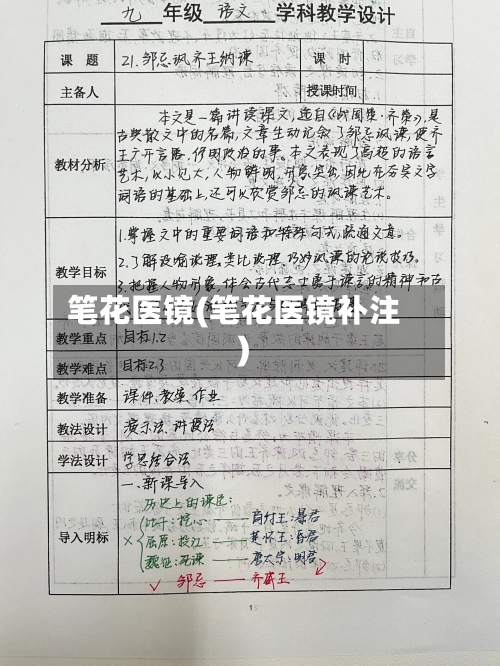 九 年级 语文 学科教学设计
课 题 21.邹忌讽齐王纳谏 课 时
主备人 授课时间
教材分析
本文是一篇讲读课文,选自《战国策·齐策》,是
古典散文中的名篇,文章生动记叙了邹忌讽谏,使齐
王广开言路,修明政治的事。本文表现了高超的语言
艺术,以小见大,人物鲜明,形象突出,因此在夯实文字
词语的基础上,还可以欣赏邹忌的讽谏艺术。
教学目标
1.掌握文中的重要词语和特殊句式,疏通文意。
2.了解设喻说理,类比说理,巧妙讽谏的论说技巧。
3.把握人物形象,体会古代志士勇于谏言的精神和古
笔花医镜(笔花医镜补注
)
教学重点 目标1.2
教学难点 目标2.3
教学准备 课件、教案、作业
教法设计 演示法、讲授法
学法设计 学思结合法
导入明标
一、新课导入
历史上的谏臣:
比干:挖心——商纣王:暴君
× 屈原:投江——楚怀王:昏君
魏征:死谏——唐太宗:明君
√ 邹忌——齐威王